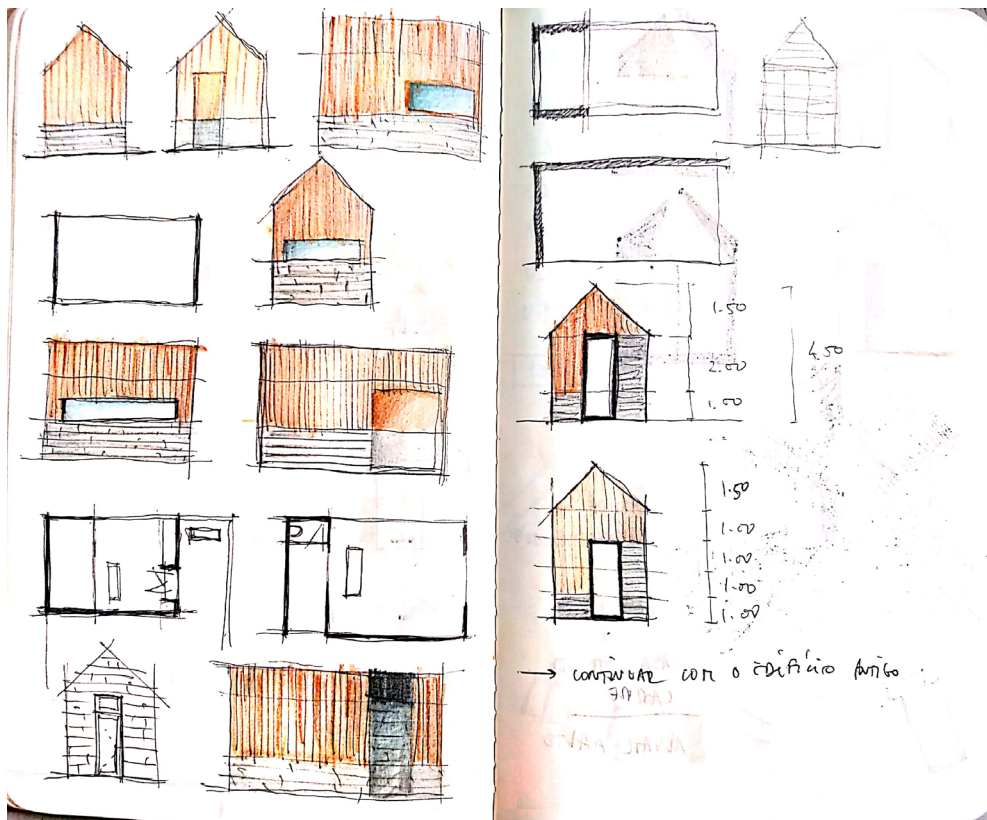 1.50
2.00
1.00
4.50
1.50
1.00
1.00
1.00
1.00
→ CONTINUAR COM O EDIFÍCIO ANTIGO.